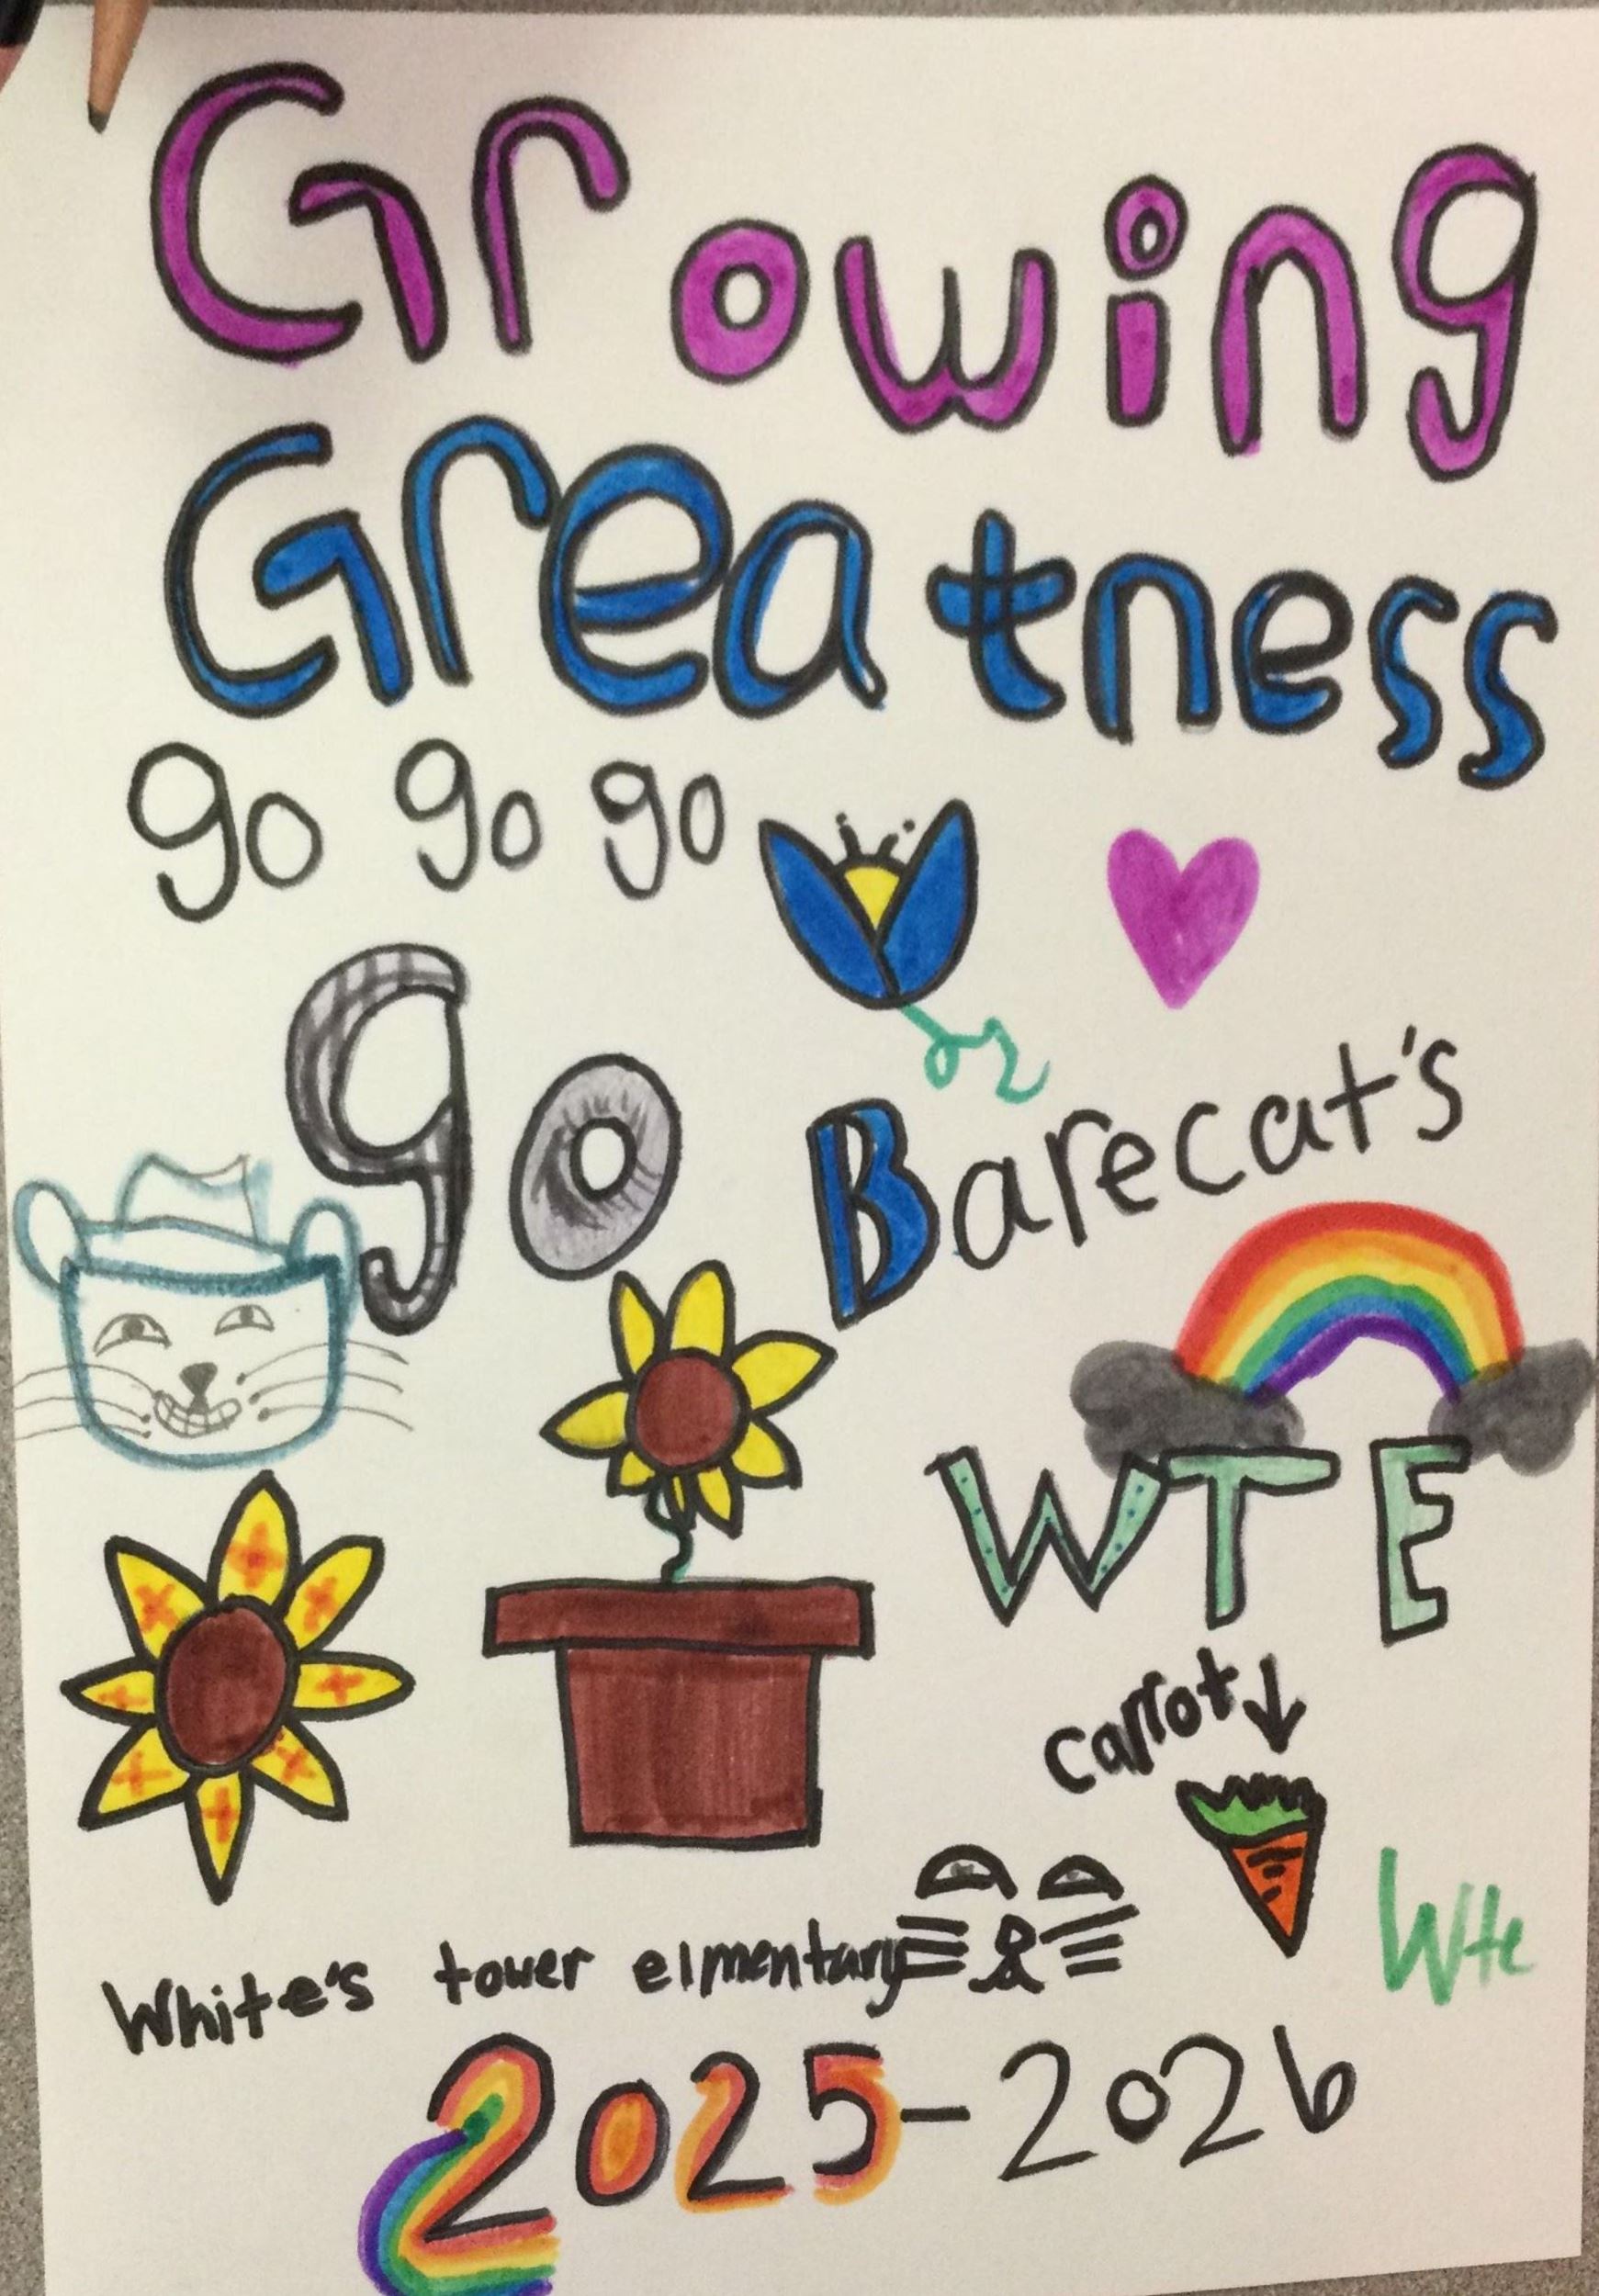 Growing
Greatness
go go go
go Barecat's
WTE
carrot
White's tower elmentary
Wte
2025-2026